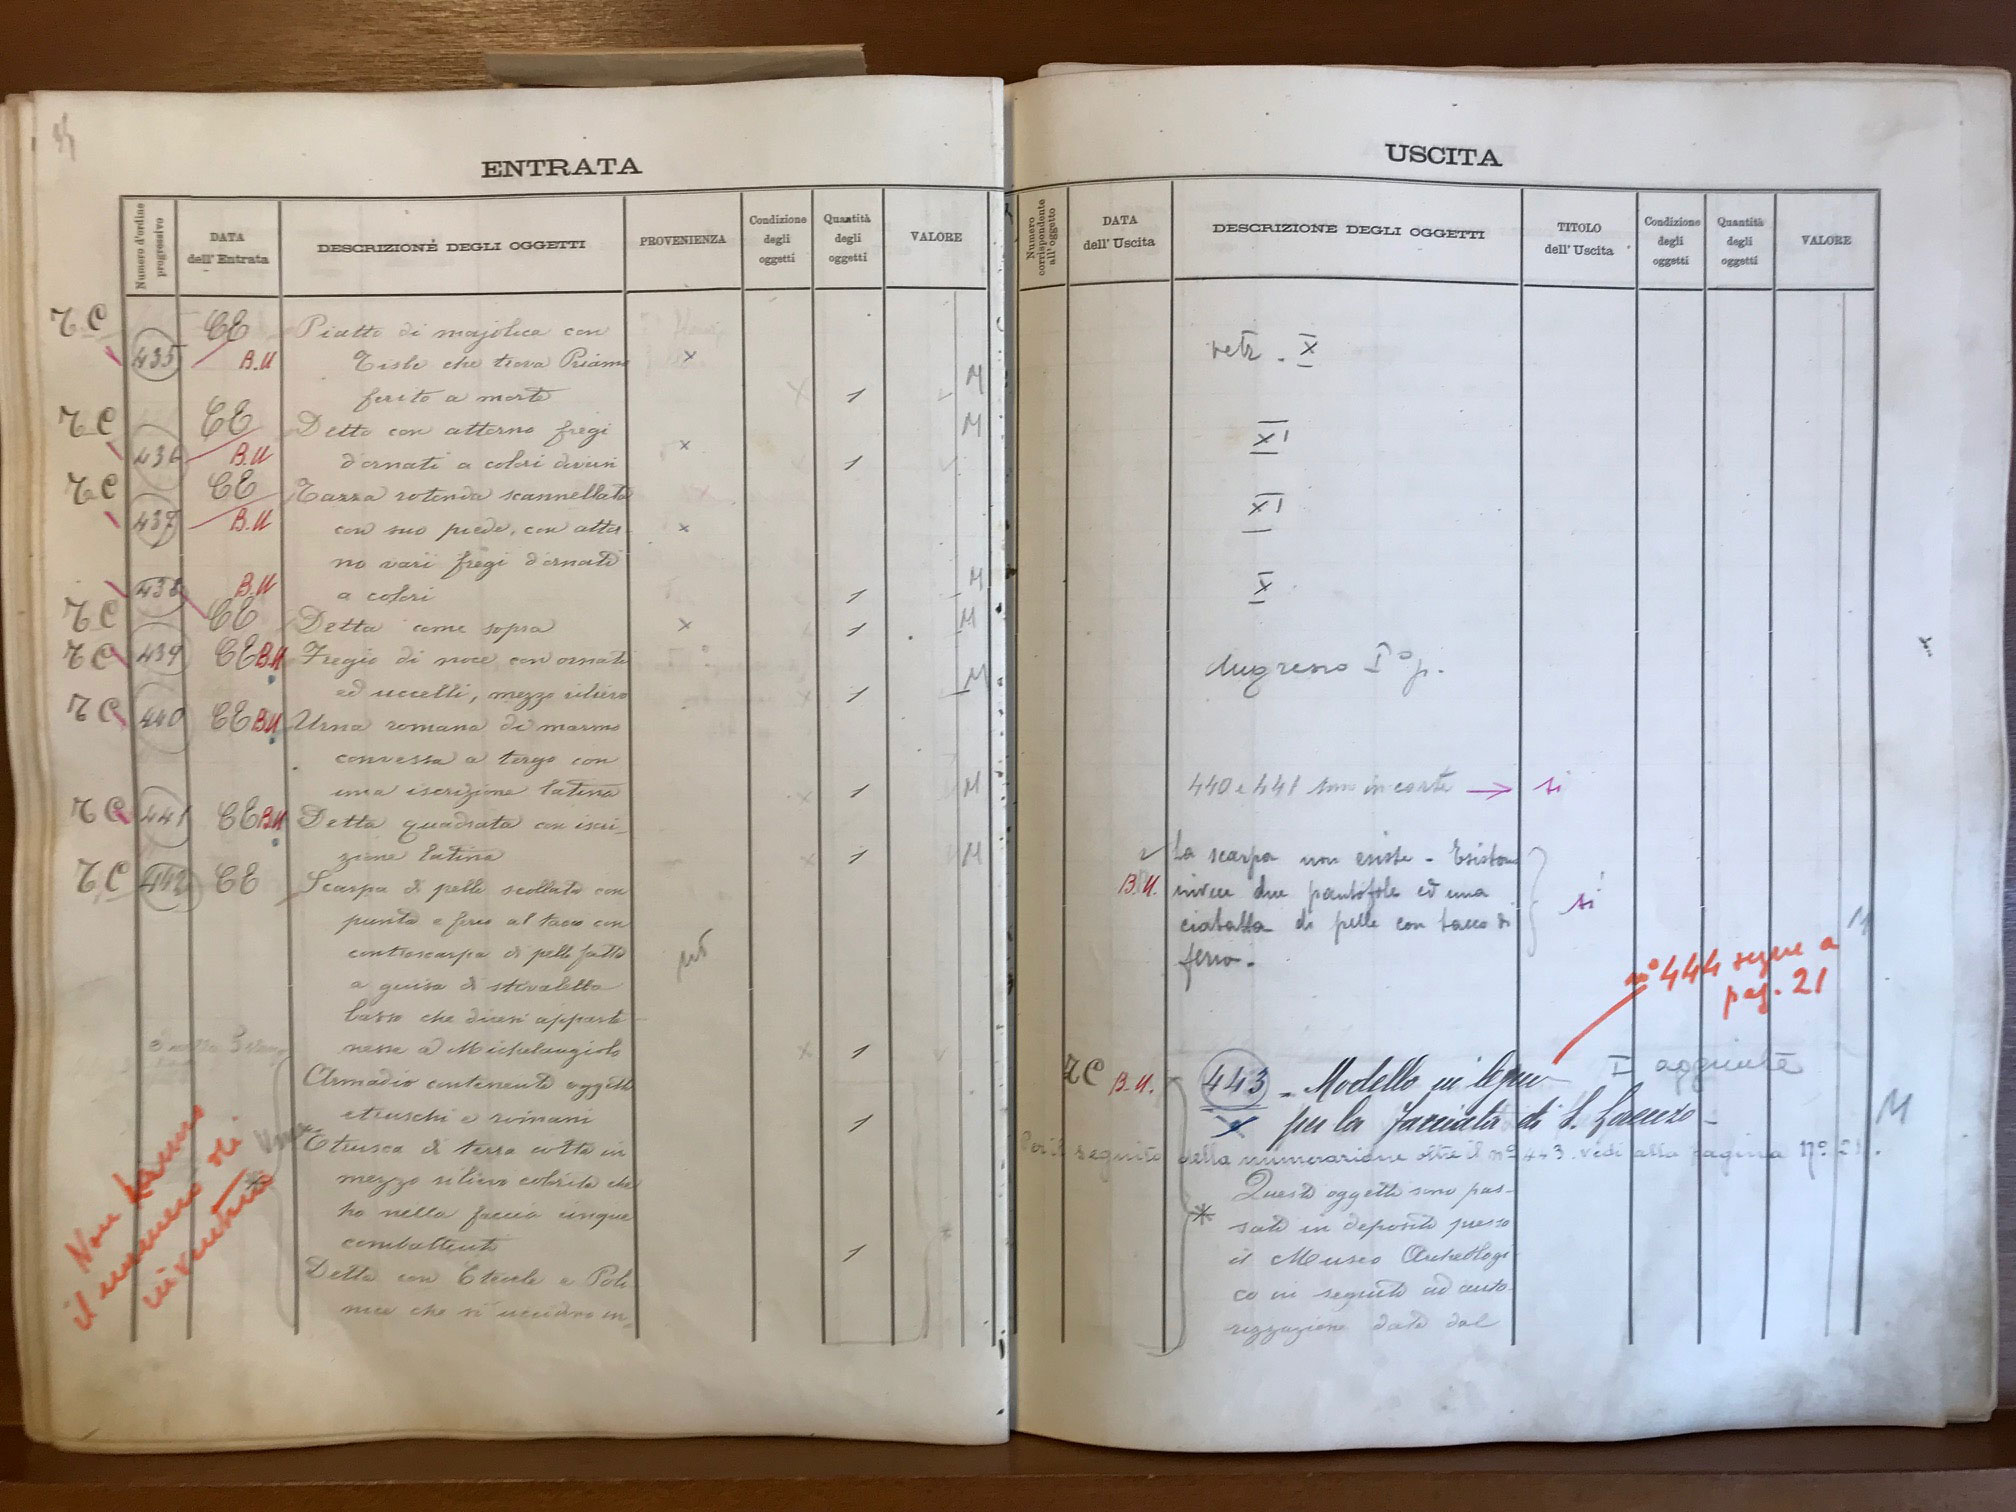 ENTRATA
Numero d'ordine progressivo
DATA dell' Entrata
DESCRIZIONE DEGLI OGGETTI
PROVENIENZA
Condizione degli oggetti
Quantità degli oggetti
VALORE
TC 435 CE B.U Piatto di majolica con
Tisbe che trova Priamo x
ferito a morte 1 M
TC CE Detto con attorno fregi M
436 B.U d'ornati a colori diversi x 1
TC CE Tazza rotonda scannellata
437 B.U con suo piede, con attor- x
no varii fregi d'ornati
438 B.U a colori 1 M
TC CE Detta come sopra x 1 M
TC 439 CE B.U Fregio di noce con ornati
ed uccelli, mezzo rilievo 1 M
TC 440 CE B.U Urna romana di marmo
convessa a tergo con
una iscrizione latina 1 M
TC 441 CE B.U Detta quadrata con iscri-
zione latina 1 M
TC 442 CE Scarpa di pelle scollata con
punta e ferro al tacco con
controscarpa di pelle fatta
a guisa di stivaletto
basso che dicesi apparte
nesse a Michelangiolo 1
Armadio contenente oggetti
etruschi e romani 1
Urna Etrusca di terra cotta in
* mezzo rilievo colorita che
ha nella faccia cinque
combattenti 1
Detta con Eteocle e Poli-
nice che si uccidono in-
Non hanno
il numero di
inventario
USCITA
Numero corrispondente all'oggetto
DATA dell' Uscita
DESCRIZIONE DEGLI OGGETTI
TITOLO dell' Uscita
Condizione degli oggetti
Quantità degli oggetti
VALORE
vetr. X
XI
XI
X
Ingresso I° p.
440 e 441 sono in corte → si
La scarpa non esiste - Esistono
B.U. invece due pantofole ed una
ciabatta di pelle con tacco di
ferro - si
M
n° 444 segue a
pag. 21
TC B.U. 443 - Modello in legno I aggiunte
per la facciata di S. Lorenzo - M
Per il seguito della numerazione oltre il n° 443 vedi alla pagina N° 21.
Questi oggetti sono pas-
* sati in deposito presso
il Museo Archeologi-
co in seguito ad auto-
rizzazione data dal